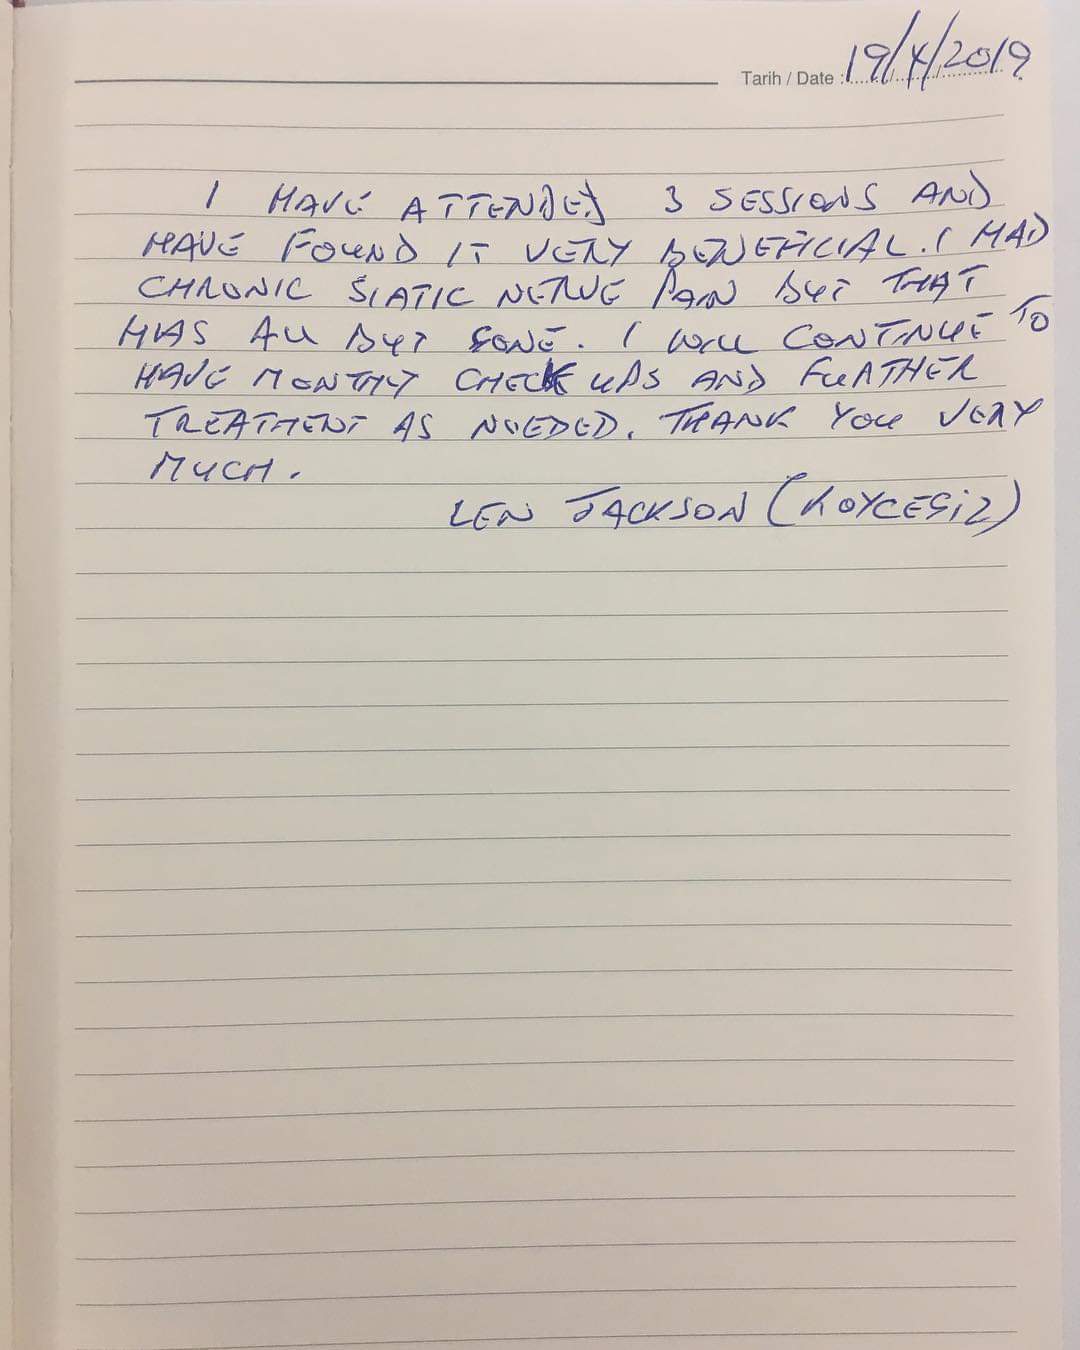 Tarih / Date : 19/4/2019
I HAVE ATTENDED 3 SESSIONS AND
HAVE FOUND IT VERY BENEFICIAL. I HAD
CHRONIC SIATIC NERVE PAIN BUT THAT
HAS ALL BUT GONE. I WILL CONTINUE TO
HAVE MONTHLY CHECK UPS AND FURTHER
TREATMENT AS NEEDED. THANK YOU VERY
MUCH.
LEN JACKSON (KOYCEGiZ)